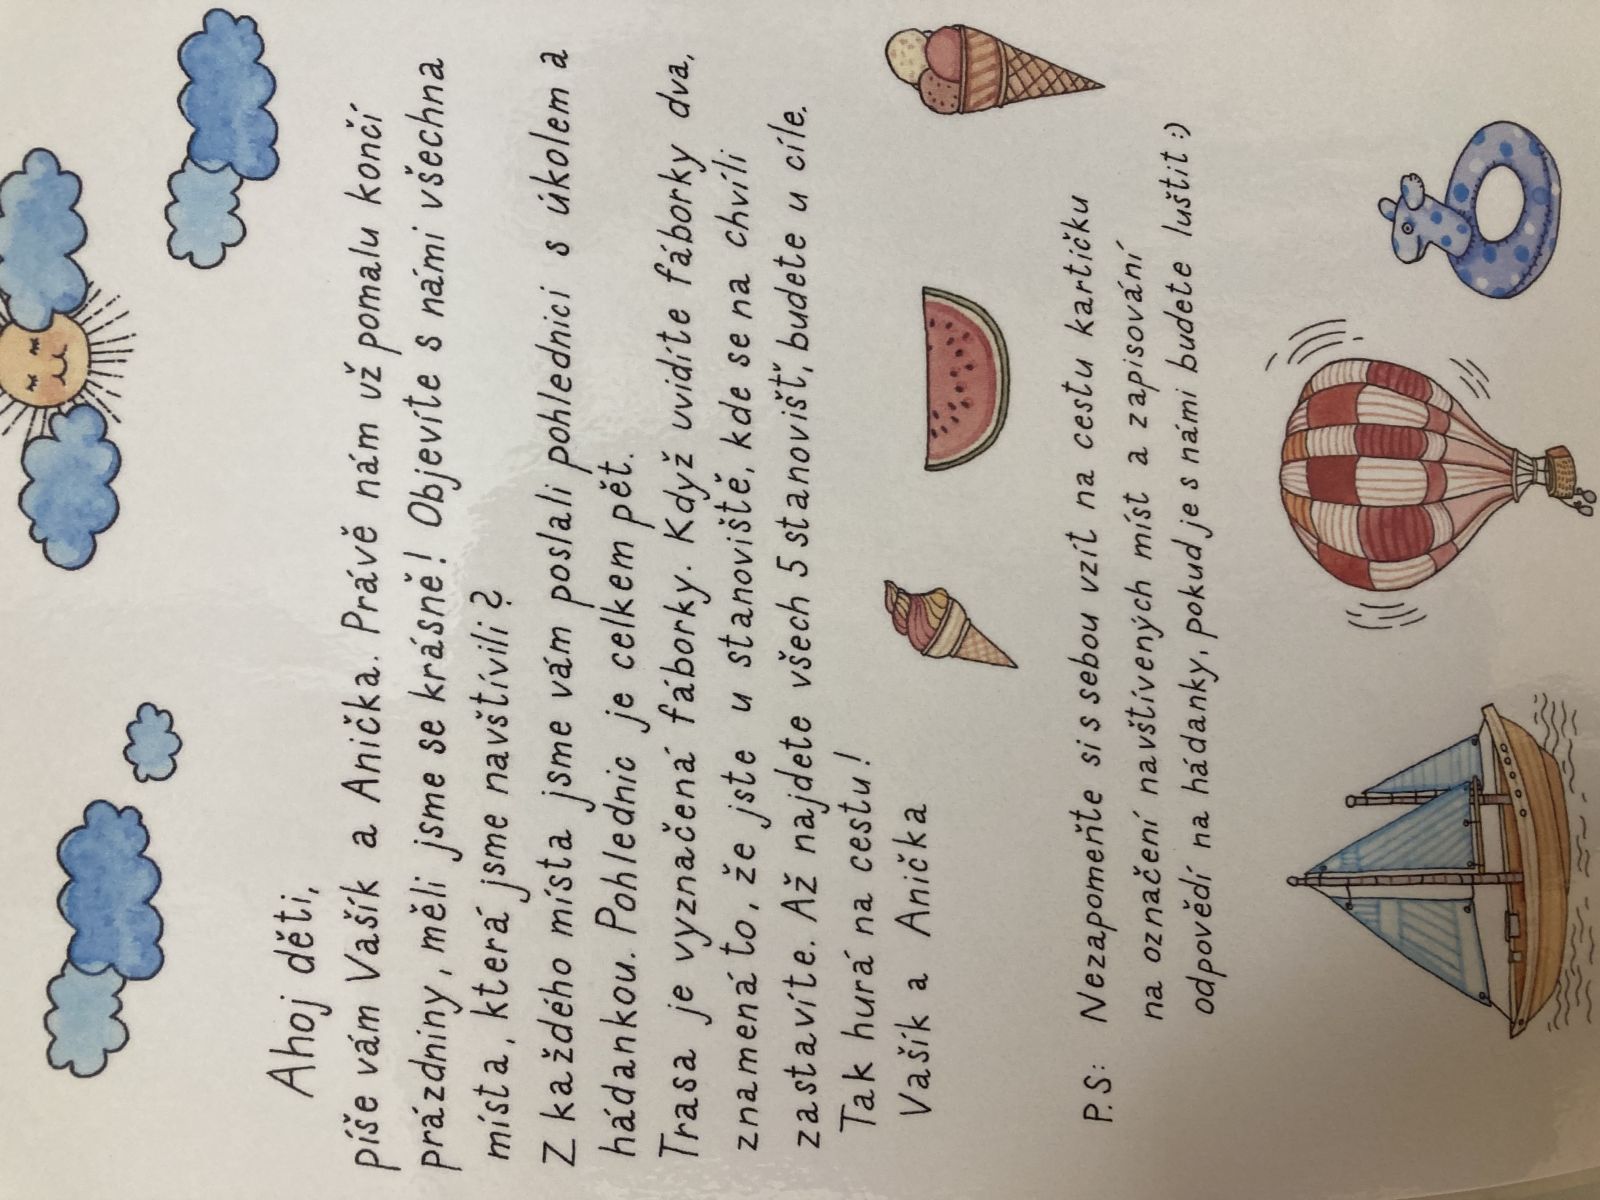 Ahoj děti,
píše vám Vašík a Anička. Právě nám už pomalu končí
prázdniny, měli jsme se krásně! Objevíte s námi všechna
místa, která jsme navštívili?
Z každého místa jsme vám poslali pohlednici s úkolem a
hádankou. Pohlednic je celkem pět.
Trasa je vyznačená fáborky. Když uvidíte fáborky dva,
znamená to, že jste u stanoviště, kde se na chvíli
zastavíte. Až najdete všech 5 stanovišť, budete u cíle.
Tak hurá na cestu!
Vašík a Anička
P.S: Nezapomeňte si s sebou vzít na cestu kartičku
na označení navštívených míst a zapisování
odpovědí na hádanky, pokud je s námi budete luštit :)